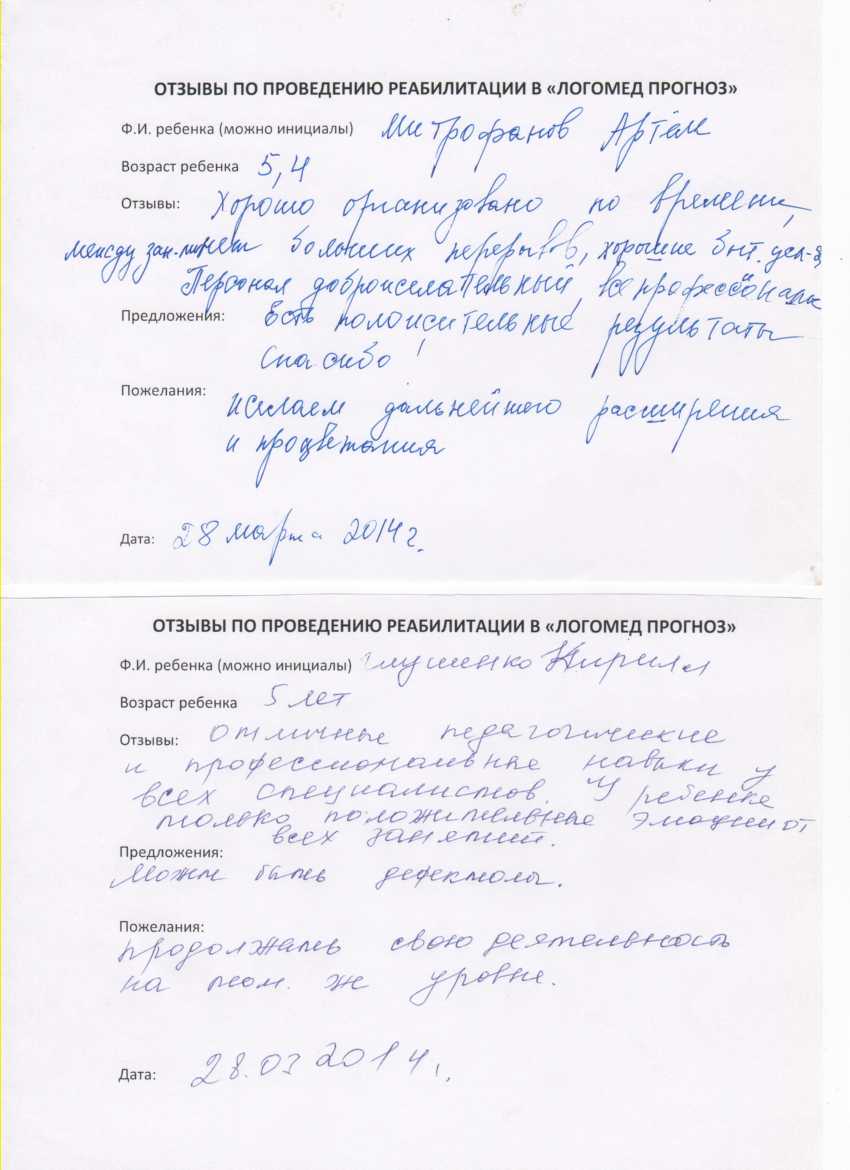 ОТЗЫВЫ ПО ПРОВЕДЕНИЮ РЕАБИЛИТАЦИИ В «ЛОГОМЕД ПРОГНОЗ»
Ф.И. ребенка (можно инициалы) Митрофанов Артём
Возраст ребенка 5,4
Отзывы: Хорошо организовано по времени,
между зан.-ми нет больших перерывов, хорошие
Персонал доброжелательный, все профессионалы
Предложения: Есть положительные результаты
Спасибо!
Пожелания: Желаем дальнейшего расширения
и процветания
Дата: 28 марта 2014 г.
ОТЗЫВЫ ПО ПРОВЕДЕНИЮ РЕАБИЛИТАЦИИ В «ЛОГОМЕД ПРОГНОЗ»
Ф.И. ребенка (можно инициалы) Глушенко Кирилл
Возраст ребенка 5 лет
Отзывы: Отличные педагогические
и профессиональные навыки у
всех специалистов. У ребенка
только положительные эмоции от
всех занятий.
Предложения:
Может быть
Пожелания:
продолжать свою деятельность
на том же уровне.
Дата: 28.03 2014 г.